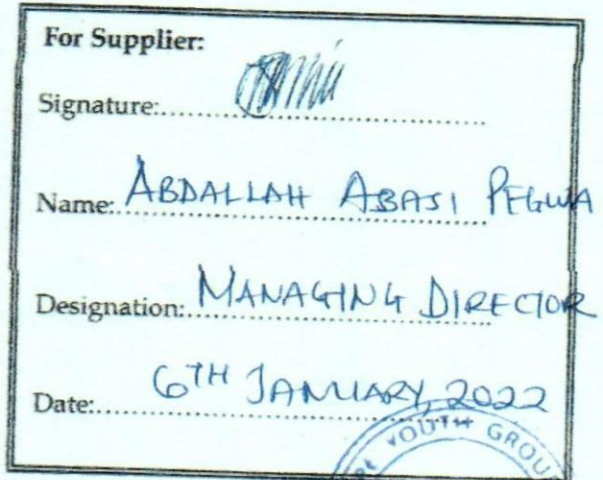 For Supplier:
Signature:
Name: ABDALLAH ABASI PEGWA
Designation: MANAGING DIRECTOR
Date: 6TH JANUARY, 2022
YOUTH GROUP